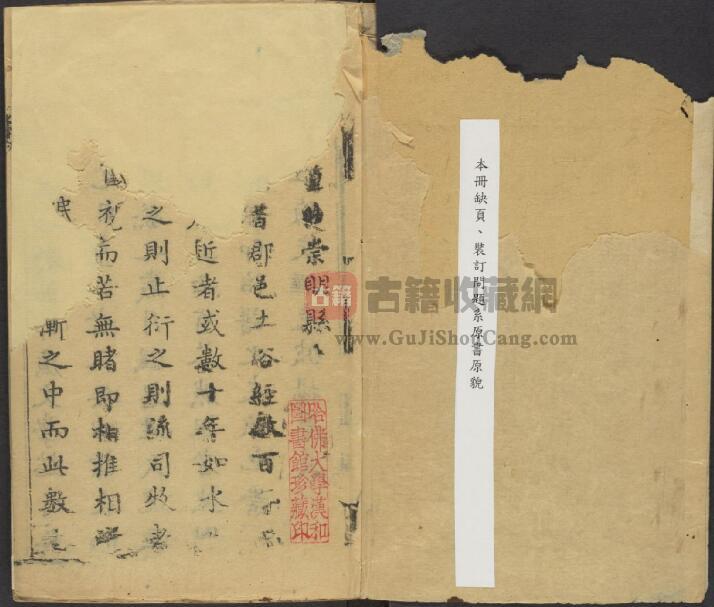 本冊缺頁、裝訂問題系原書原貌
崇明縣
郡邑土俗經數百
近者或數十年如水
之則止衍之則流司牧者
視而若無睹即相推相
民
漸之中而此數
哈佛大學漢和
圖書館珍藏印
古籍
古籍收藏網
www.GuJiShouCang.com